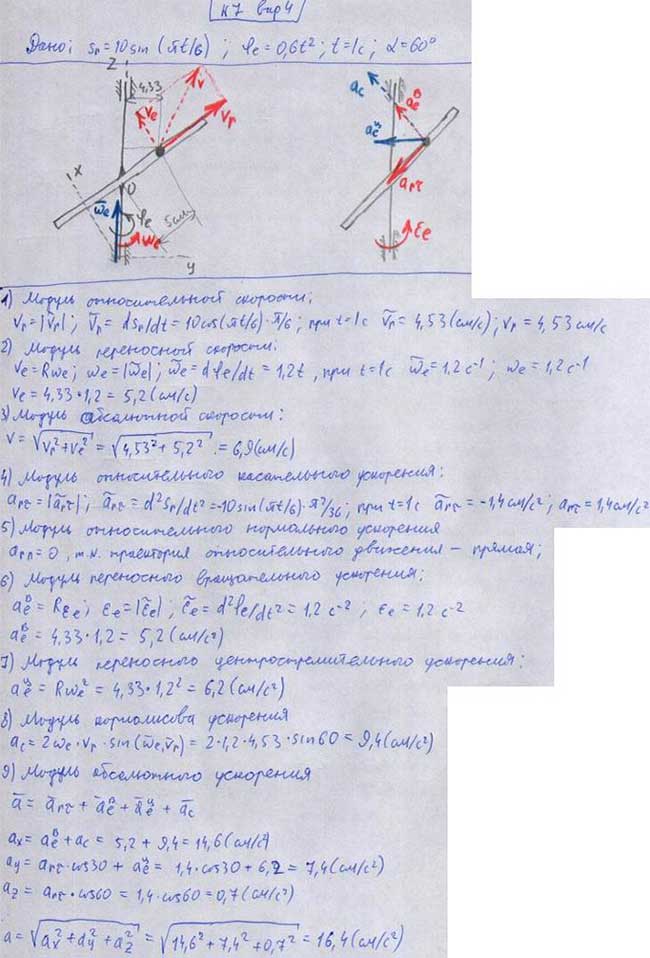 К7 вар 4
Дано: Sr=10sin(πt/6); φe=0,6t²; t=1c; α=60°
z
4,33
v̄
v̄e
v̄r
x
O
ω̄e
φe
ωe
5см
y
ac
aeᵇ
aeᶸ
arτ
εe
1) Модуль относительной скорости:
Vr=|ṽr|; ṽr = dSr/dt = 10cos(πt/6)·π/6; при t=1c ṽr = 4,53(см/с); vr = 4,53 см/с
2) Модуль переносной скорости:
ve=Rωe; ωe=|ω̃e|; ω̃e=dφe/dt = 1,2t, при t=1c ω̃e=1,2 c⁻¹; ωe=1,2 c⁻¹
ve=4,33·1,2=5,2(см/с)
3) Модуль абсолютной скорости:
v=√vr²+ve²=√4,53²+5,2² = 6,9(см/с)
4) Модуль относительного касательного ускорения:
arτ=|ãrτ|; ãrτ = d²Sr/dt²=-10sin(πt/6)·π²/36; при t=1c ãrτ = -1,4см/с²; arτ=1,4см/с²
5) Модуль относительного нормального ускорения
arn=0, т.к. траектория относительного движения – прямая;
6) Модуль переносного вращательного ускорения:
aeᵇ = Rεe; εe=|ε̃e|; ε̃e=d²φe/dt²=1,2 c⁻²; εe=1,2 c⁻²
aeᵇ = 4,33·1,2=5,2(см/с²)
7) Модуль переносного центростремительного ускорения:
aeᶸ=Rωe²=4,33·1,2²=6,2(см/с²)
8) Модуль кориолисова ускорения
ac=2ωe·vr·sin(ω̄e,v̄r)=2·1,2·4,53·sin60=9,4(см/с²)
9) Модуль абсолютного ускорения
ā=ārτ+āeᵇ+āeᶸ+āc
ax=aeᵇ+ac=5,2+9,4=14,6(см/с²)
ay=arτ·cos30+aeᶸ=1,4·cos30+6,2=7,4(см/с²)
az=arτ·cos60=1,4·cos60=0,7(см/с²)
a=√ax²+ay²+az²=√14,6²+7,4²+0,7²=16,4(см/с²)